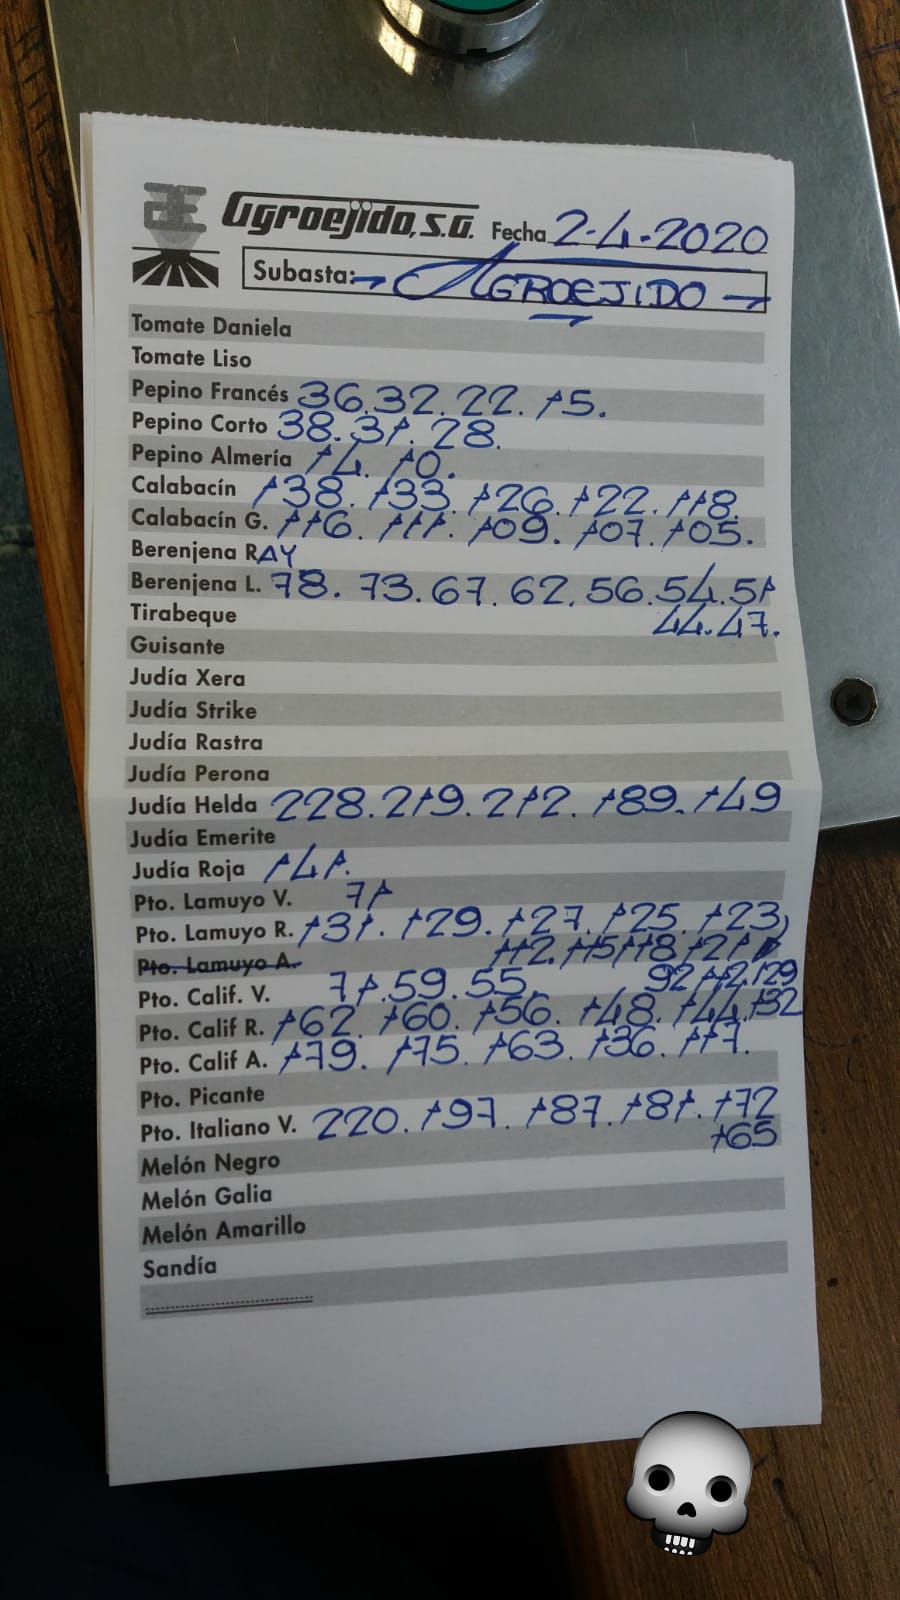 Agroejido, S.A. Fecha 2-4-2020
Subasta: - AGROEJIDO -
Tomate Daniela
Tomate Liso
Pepino Francés 36.32.22.15.
Pepino Corto 38.31.28.
Pepino Almería 14.10.
Calabacín 138.133.126.122.118.
Calabacín G. 116.111.109.107.105.
Berenjena RAY
Berenjena L. 78.73.67.62.56.54.51
Tirabeque 44.47.
Guisante
Judía Xera
Judía Strike
Judía Rastra
Judía Perona
Judía Helda 228.219.212.189.149
Judía Emerite
Judía Roja 141.
Pto. Lamuyo V. 71
Pto. Lamuyo R. 131.129.127.125.123
Pto. Lamuyo A. 112.115.118.121
Pto. Calif. V. 71.59.55. 92.112.129
Pto. Calif R. 162.160.156.148.144.132
Pto. Calif A. 179.175.163.136.117.
Pto. Picante
Pto. Italiano V. 220.197.187.181.172
165
Melón Negro
Melón Galia
Melón Amarillo
Sandía